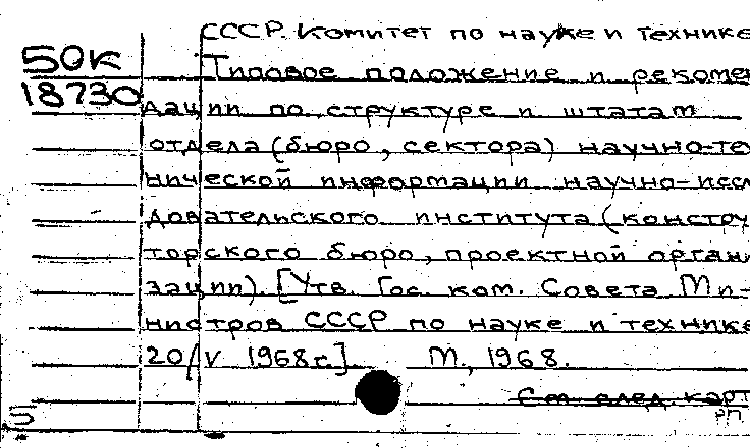 СССР. Комитет по науке и технике
50К
Типовое положение и рекомен
18730
дации по структуре и штатам
отдела (бюро, сектора) научно-тех
нической информации научно-иссл
довательского института (констру
торского бюро, проектной органи
зации). [Утв. Гос. ком. Совета Ми-
нистров СССР по науке и технике
20/V 1968г.] М., 1968.
См. след. карт
5